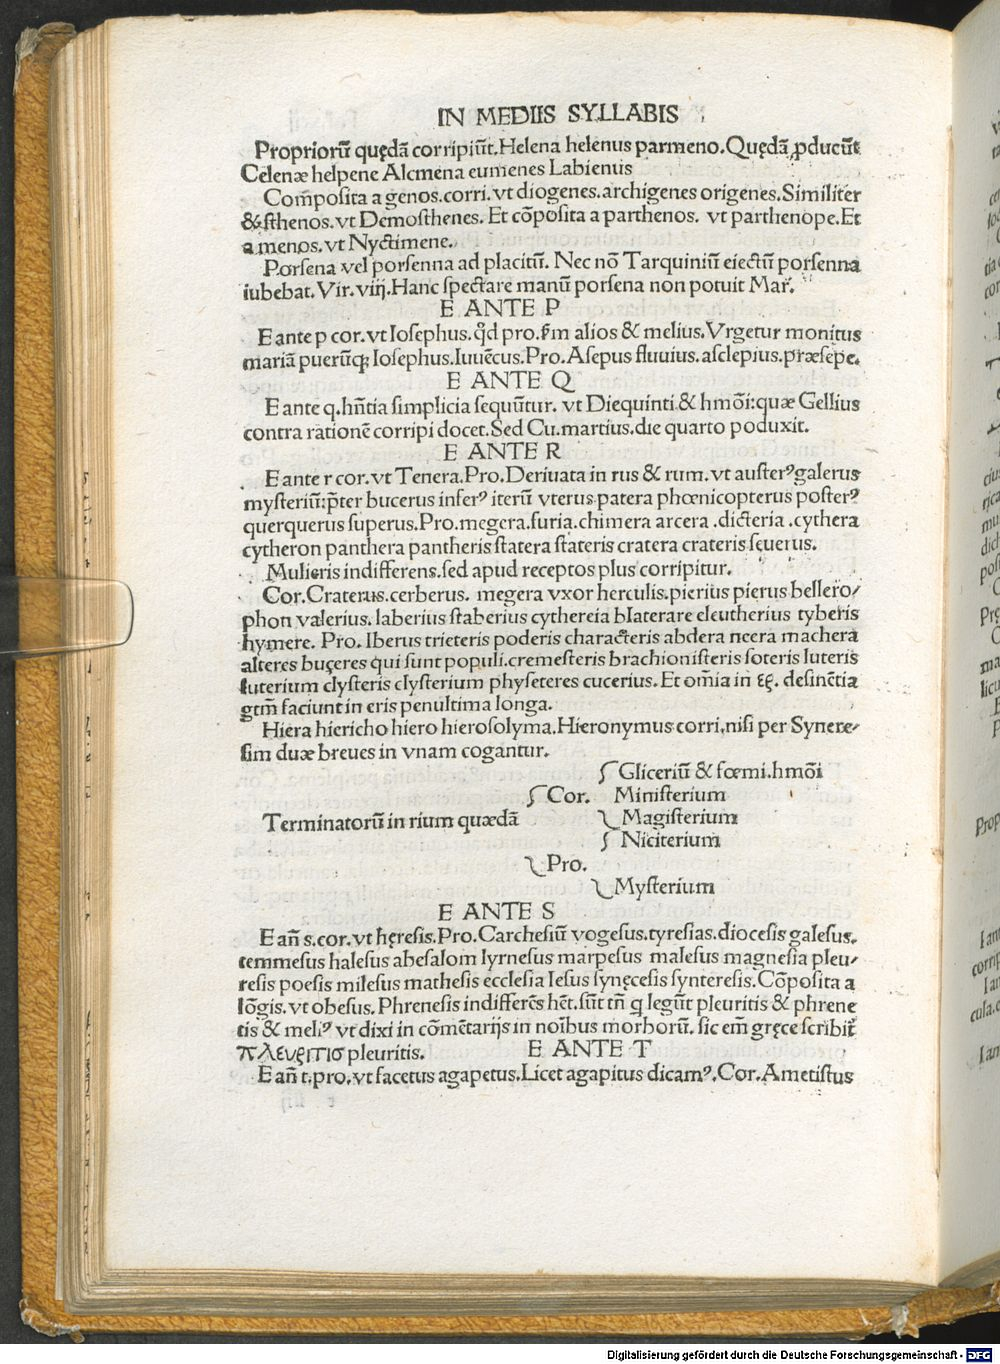 IN MEDIIS SYLLABIS
Propriorū quędā corripiūt. Helena helenus parmeno. Quędā ꝓducūt
Celenæ helpene Alcmena eumenes Labienus
Cōposita a genos. corri. vt diogenes. archigenes origenes. Similiter
& sthenos. vt Demosthenes. Et cōposita a parthenos. vt parthenope. Et
a menos. vt Nyctimene.
Porsena vel porsenna ad placitū. Nec nō Tarquiniū eiectū porsenna
iubebat. Vir. viij. Hanc spectare manū porsena non potuit Mar.
E ANTE P
E ante p cor. vt Iosephus. qd̄ pro. fm alios & melius. Vrgetur monitus
mariā puerūqꝫ Iosephus. Iuuēcus. Pro. Asepus fluuius. asclepius. præsepe.
E ANTE Q
E ante q. hn̄tia simplicia sequūtur. vt Diequinti & hmōi: quæ Gellius
contra rationē corripi docet. Sed Cu. martius. die quarto poduxit.
E ANTE R
E ante r cor. vt Tenera. Pro. Deriuata in rus & rum. vt austerꝰ galerus
mysteriū: p̄ter bucerus inferꝰ iterū vterus patera phœnicopterus posterꝰ
querquerus superus. Pro. megera. furia. chimera arcera . dicteria . cythera
cytheron panthera pantheris statera stateris cratera crateris seuerus.
Mulieris indifferens. sed apud receptos plus corripitur.
Cor. Craterus. cerberus. megera vxor herculis. pierius pierus bellero/
phon valerius. laberius staberius cythereia blaterare eleutherius tyberis
hymere. Pro. Iberus trieteris poderis characteris abdera neera machera
alteres buceres qui sunt populi. cremesteris brachionisteris soteris luteris
luterium clysteris clysterium physeteres cucerius. Et om̄ia in ερ. desinētia
gtm̄ faciunt in eris penultima longa.
Hiera hiericho hiero hierosolyma. Hieronymus corri, nisi per Synere/
sim duæ breues in vnam cogantur.
Gliceriū & fœmi. hmōi
Cor. Ministerium
Terminatorū in rium quædā Magisterium
Niciterium
Pro.
Mysterium
E ANTE S
E an̄ s. cor. vt hęresis. Pro. Carchesiū vogesus. tyresias. diocesis galesus.
temmesus halesus abesalom lyrnesus marpesus malesus magnesia pleu/
resis poesis milesus mathesis ecclesia Iesus synęcesis synteresis. Cōposita a
lōgis. vt obesus. Phrenesis indifferēs hēt. sūt tn̄ q legūt pleuritis & phrene
tis & meliꝰ vt dixi in cōmētarijs in noībus morborū. sic em̄ gręce scribit̄
πλευριτισ pleuritis. E ANTE T
E an̄ t. pro. vt facetus agapetus. Licet agapitus dicamꝰ. Cor. Ametistus
Digitalisierung gefördert durch die Deutsche Forschungsgemeinschaft - DFG